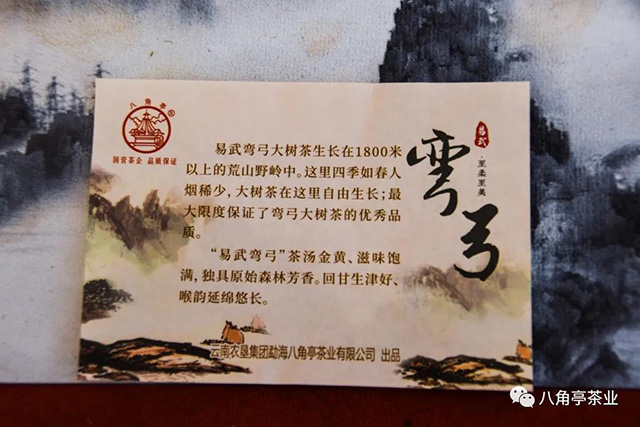 八角亭
国营茶企 品质保证
易武弯弓大树茶生长在1800米
以上的荒山野岭中。这里四季如春人
烟稀少,大树茶在这里自由生长;最
大限度保证了弯弓大树茶的优秀品
质。
“易武弯弓”茶汤金黄、滋味饱
满,独具原始森林芳香。回甘生津好、
喉韵延绵悠长。
易武
·至柔至美
弯弓
云南农垦集团勐海八角亭茶业有限公司 出品
八角亭茶业